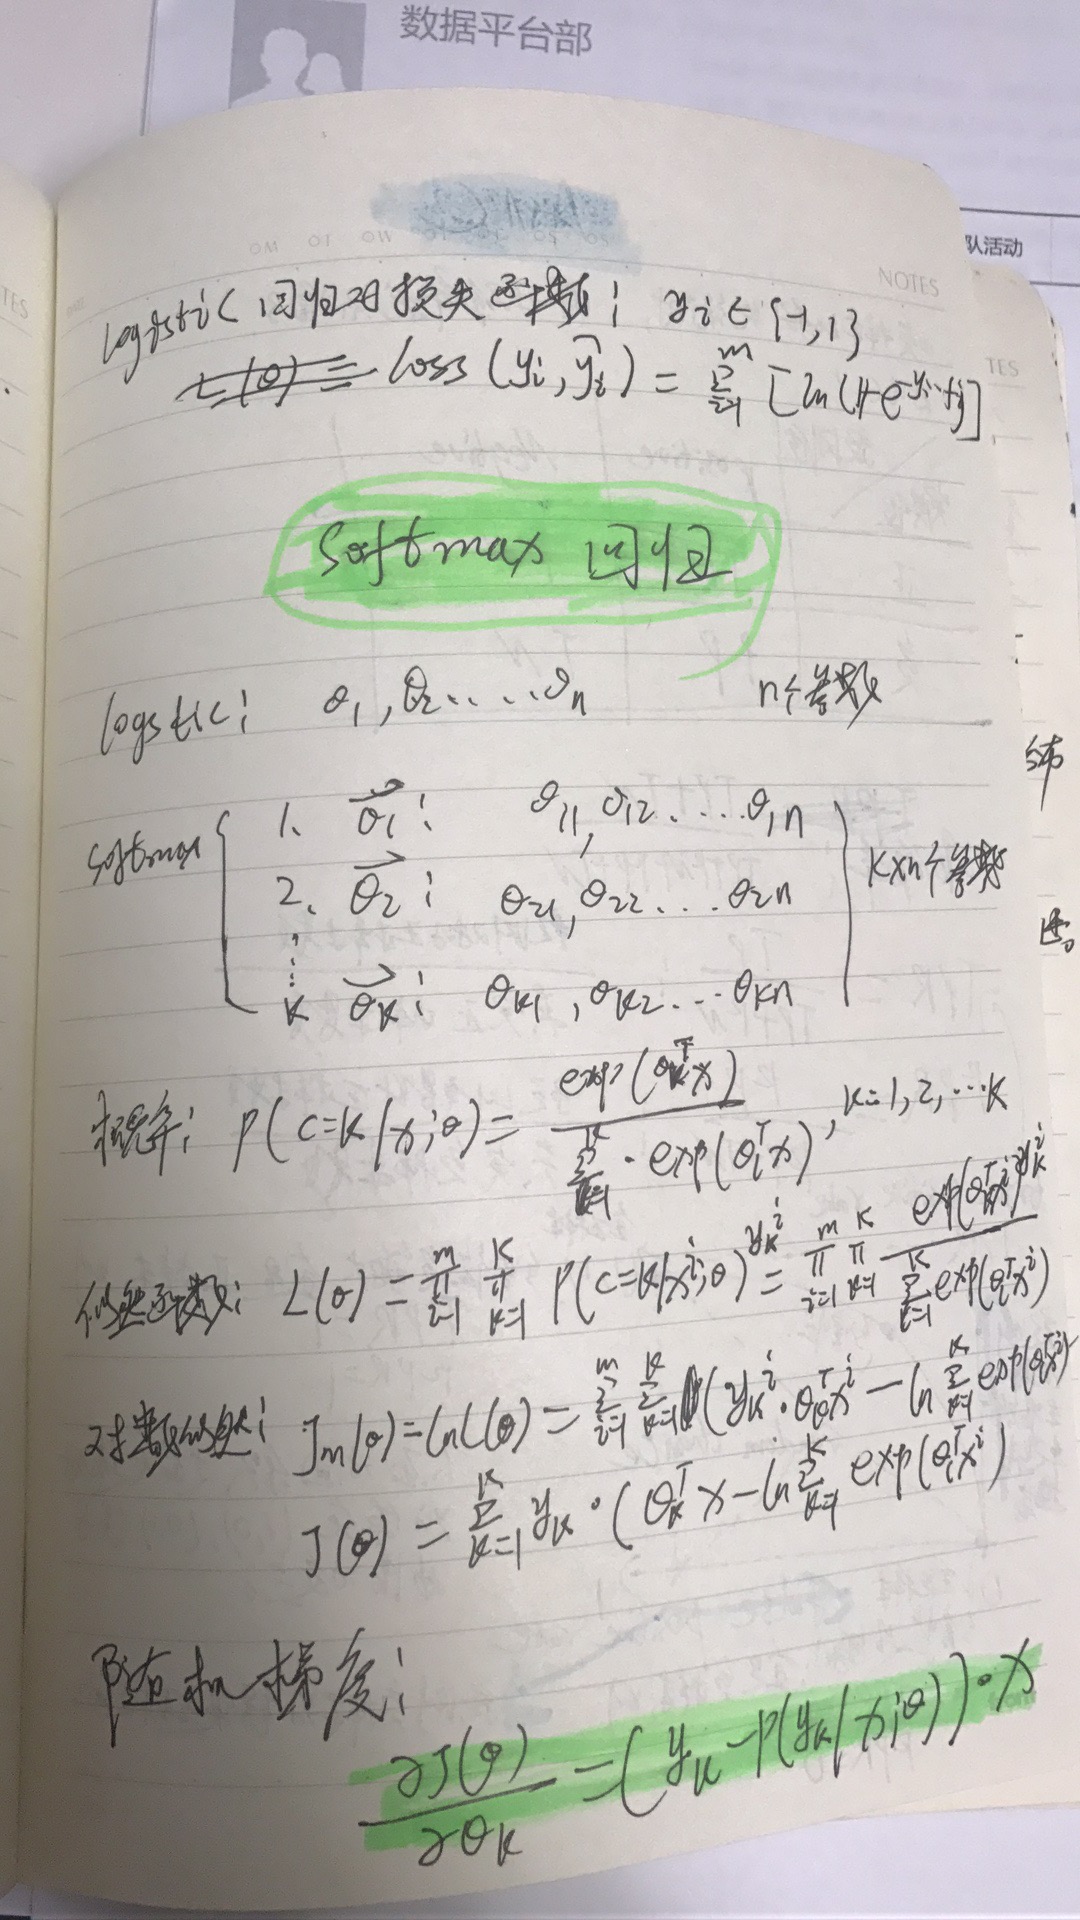 数据平台部
队活动
NOTES
TES
logistic 回归的损失函数: yi ∈ {-1,1}
L(θ) = loss (yi, ŷi) = Σ_{i=1}^{m} [ln(1+e^{-yi·fi})]
softmax 回归
logstic: θ1, θ2 ..... θn n个参数
softmax
1、 θ1: θ11, θ12 .....θ1n
2、 θ2: θ21, θ22 .....θ2n
K×n个参数
K θK: θK1, θK2 .....θKn
概率: p(c=k|x;θ) = exp(θk^T x) / Σ_{l=1}^{K} · exp(θl^T x), k=1,2,…K
似然函数: L(θ) = Π_{i=1}^{m} Π_{k=1}^{K} p(c=k|x^i;θ)^{yk^i} = Π_{i=1}^{m} Π_{k=1}^{K} exp(θk^T x^i)^{yk^i} / Σ_{l=1}^{K} exp(θl^T x^i)
对数似然: Jm(θ) = ln L(θ) = Σ_{i=1}^{m} Σ_{k=1}^{K} (yk^i · θk^T x^i − ln Σ_{l=1}^{K} exp(θl^T x^i)
J(θ) = Σ_{k=1}^{K} yk · (θk^T x − ln Σ_{k=1}^{K} exp(θl^T x^i)
随机梯度:
∂J(θ) / ∂θk = (yk − p(yk|x;θ)) · x